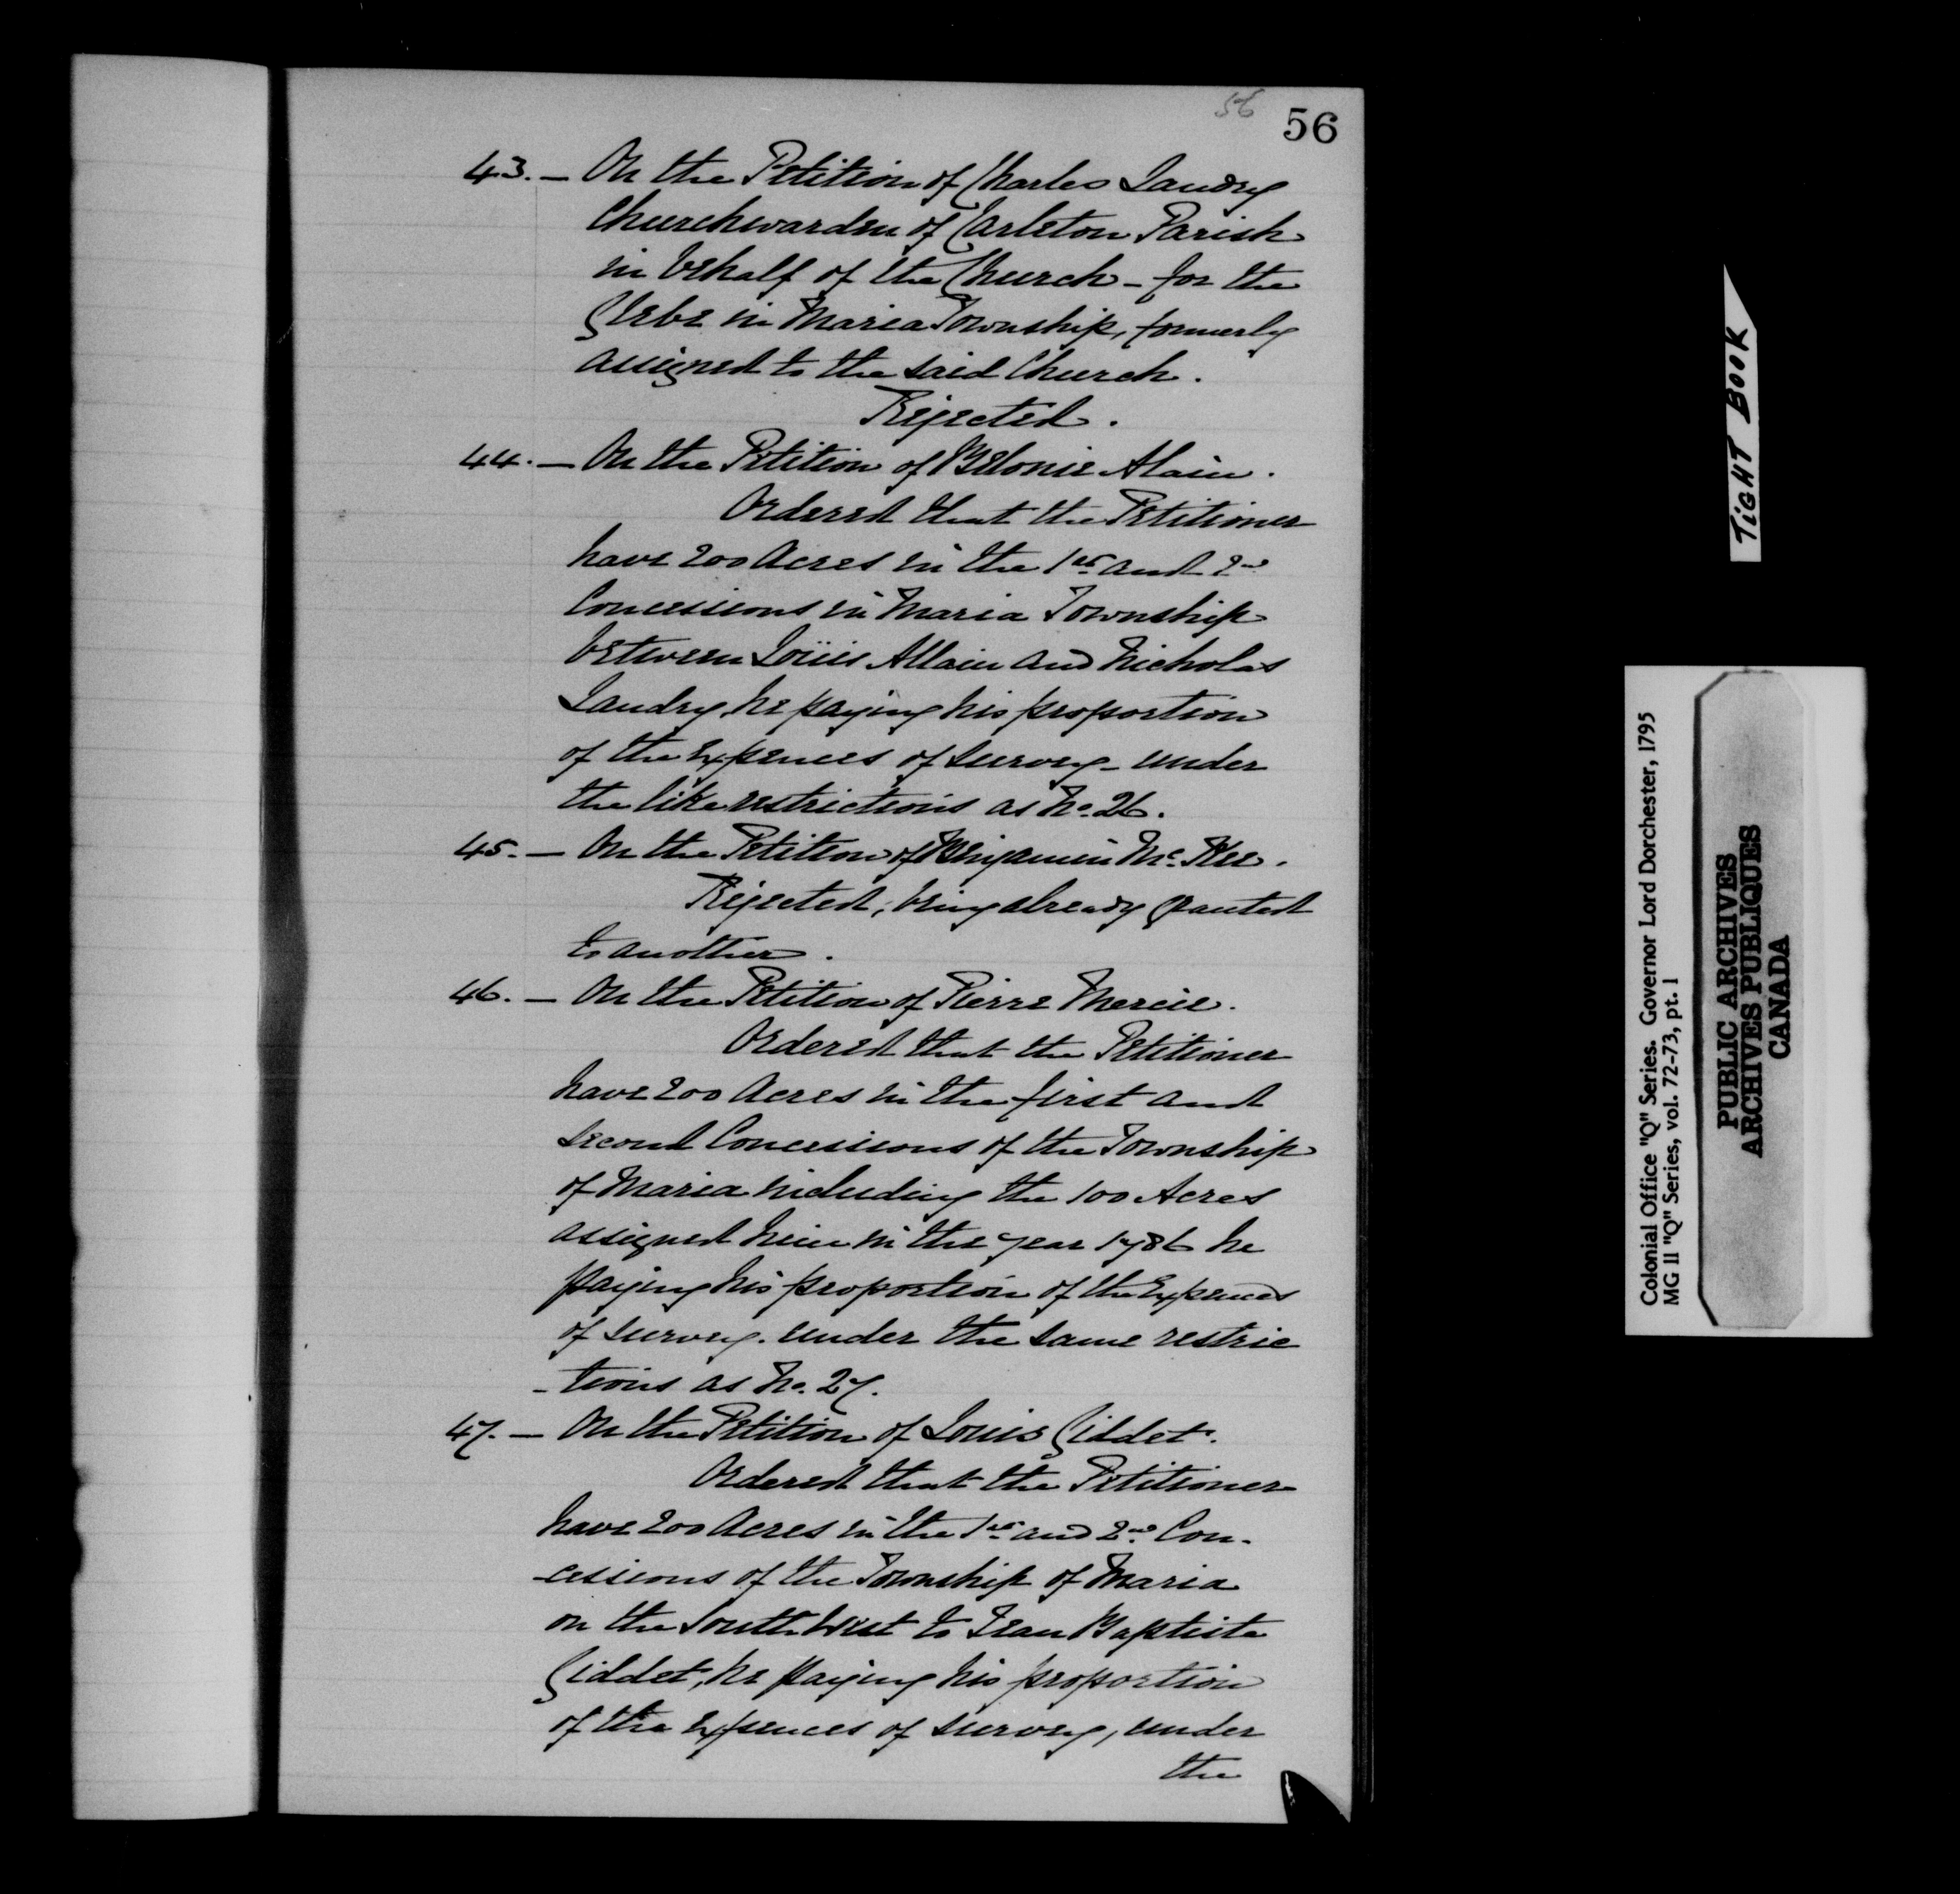 56
56
43. — On the Petition of Charles Landry
Churchwarden of Carleton Parish
in behalf of the Church - for the
Glebe in Maria Township, formerly
assigned to the said Church.
Rejected.
44. — On the Petition of Belonie Alain.
Ordered that the Petitioner
have 200 Acres in the 1st and 2nd
Concessions in Maria Township
between Loüis Allain and Nicholas
Landry, he paying his proportion
of the Expences of survey - under
the like restrictions as No. 26.
45. — On the Petition of Benjamin Mc.Kee.
Rejected, being already granted
to another.
46. — On the Petition of Pierre Mercie.
Ordered that the Petitioner
have 200 Acres in the first and
second Concessions of the Township
of Maria including the 100 Acres
assigned him in the year 1786 he
paying his proportion of the Expences
of survey. under the same restric
-tions as No. 27.
47. — On the Petition of Louis Giddet.
Ordered that the Petitioner
have 200 Acres in the 1st and 2nd Con-
-cessions of the Township of Maria
on the South West to Jean Baptiste
Giddet, he paying his proportion
of the Expences of survey, under
the
TIGHT BOOK
Colonial Office "Q" Series. Governor Lord Dorchester, 1795
MG 11 "Q" Series, vol. 72-73, pt. 1
PUBLIC ARCHIVES
ARCHIVES PUBLIQUES
CANADA